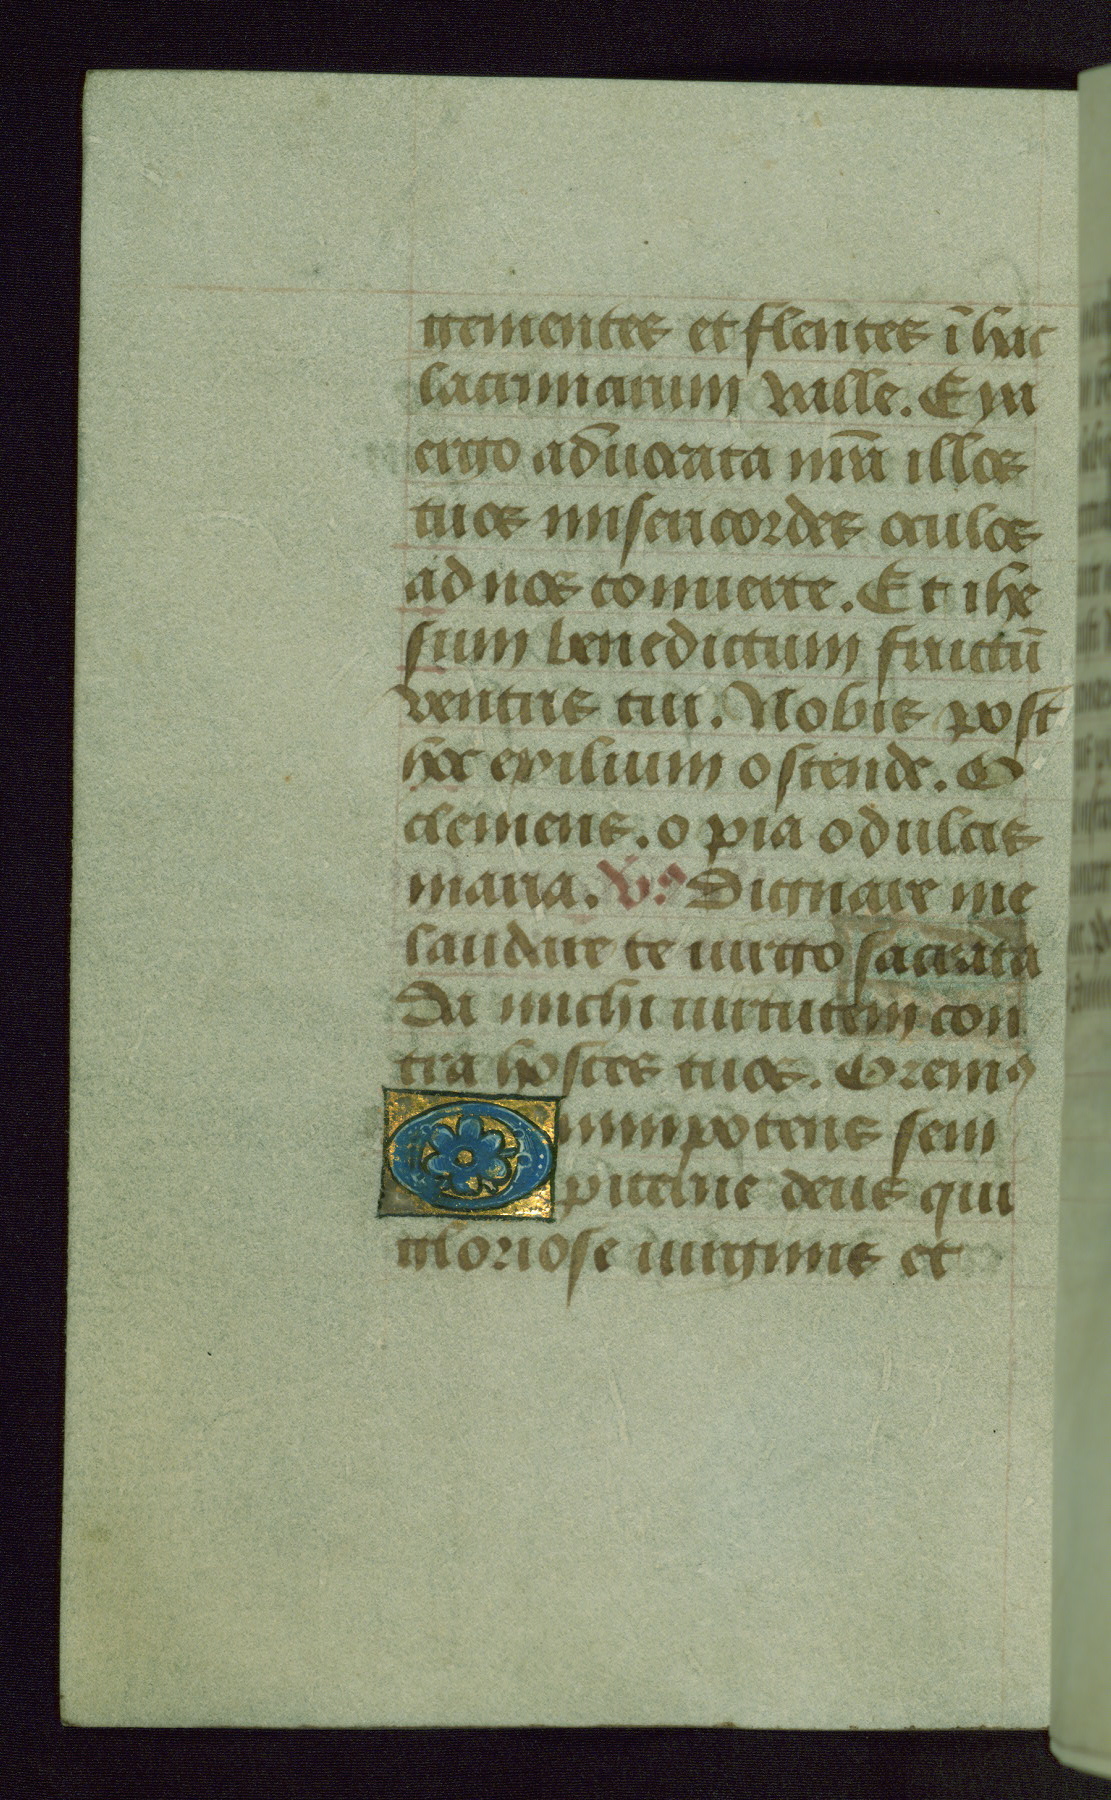 gementes et flentes ī hac
lacrimarum valle. Eya
ergo aduocata nr̄a illos
tuos misericordes oculos
ad nos conuerte. Et ihe
sum benedictum fructū
ventris tui. Nobis post
hoc exilium ostende. O
clemens. o pia o dulcis
maria. V̸s Dignare me
laudare te uirgo sacrata
Da michi uirtutem con
tra hostes tuos. Oremꝰ
Omnipotens sem
piterne deus qui
gloriose uirginis et